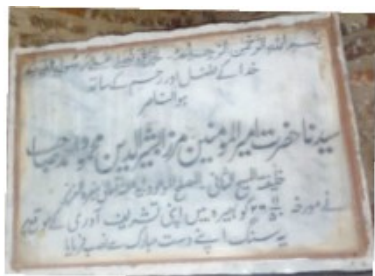 بسم اللہ الرحمن الرحیم نحمدہ ونصلی علیٰ رسولہ الکریم
خدا کے فضل اور رحم کے ساتھ
ہو الناصر
سیدنا حضرت امیر المومنین مرزا بشیر الدین محمود احمد صاحب
خلیفۃ المسیح الثانی المصلح الموعود
نے مورخہ کو بھیرہ میں اپنی تشریف آوری کے موقع پر
یہ سنگ اپنے دست مبارک سے نصب فرمایا